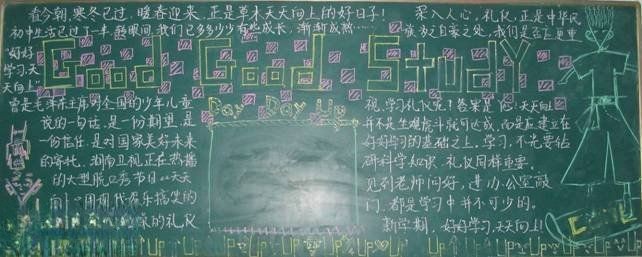 看今朝,寒冬已过,暖春迎来,正是草木天天向上的好日子!
初中生活已过了一半,
我们已多多少少有些成长,渐渐成熟……
深入人心,礼仪,正是中华民
族为之自豪之处,我们是否
Good Good Study
"好好
学习,天
天向上"
Day Day Up
曾是毛泽东主席对全国的少年儿童
说的一句话,是一份期望,是
一份信任,是对国家美好未来
的寄托,湖南卫视正在热播
的大型脱口秀节目"天天
向上"用现代娱乐搞笑的
的礼仪
视,学习礼仪呢!答案是
天天向上
并不是坐观虎斗就可达成,而是应建立在
好好学习的基础之上,学习,不光要钻
研科学知识,礼仪同样重要,
见到老师问好,进办公室敲
门,都是学习中并不可少的。
新学期,好好学习,天天向上!
UP UP UP UP UP UP UP UP